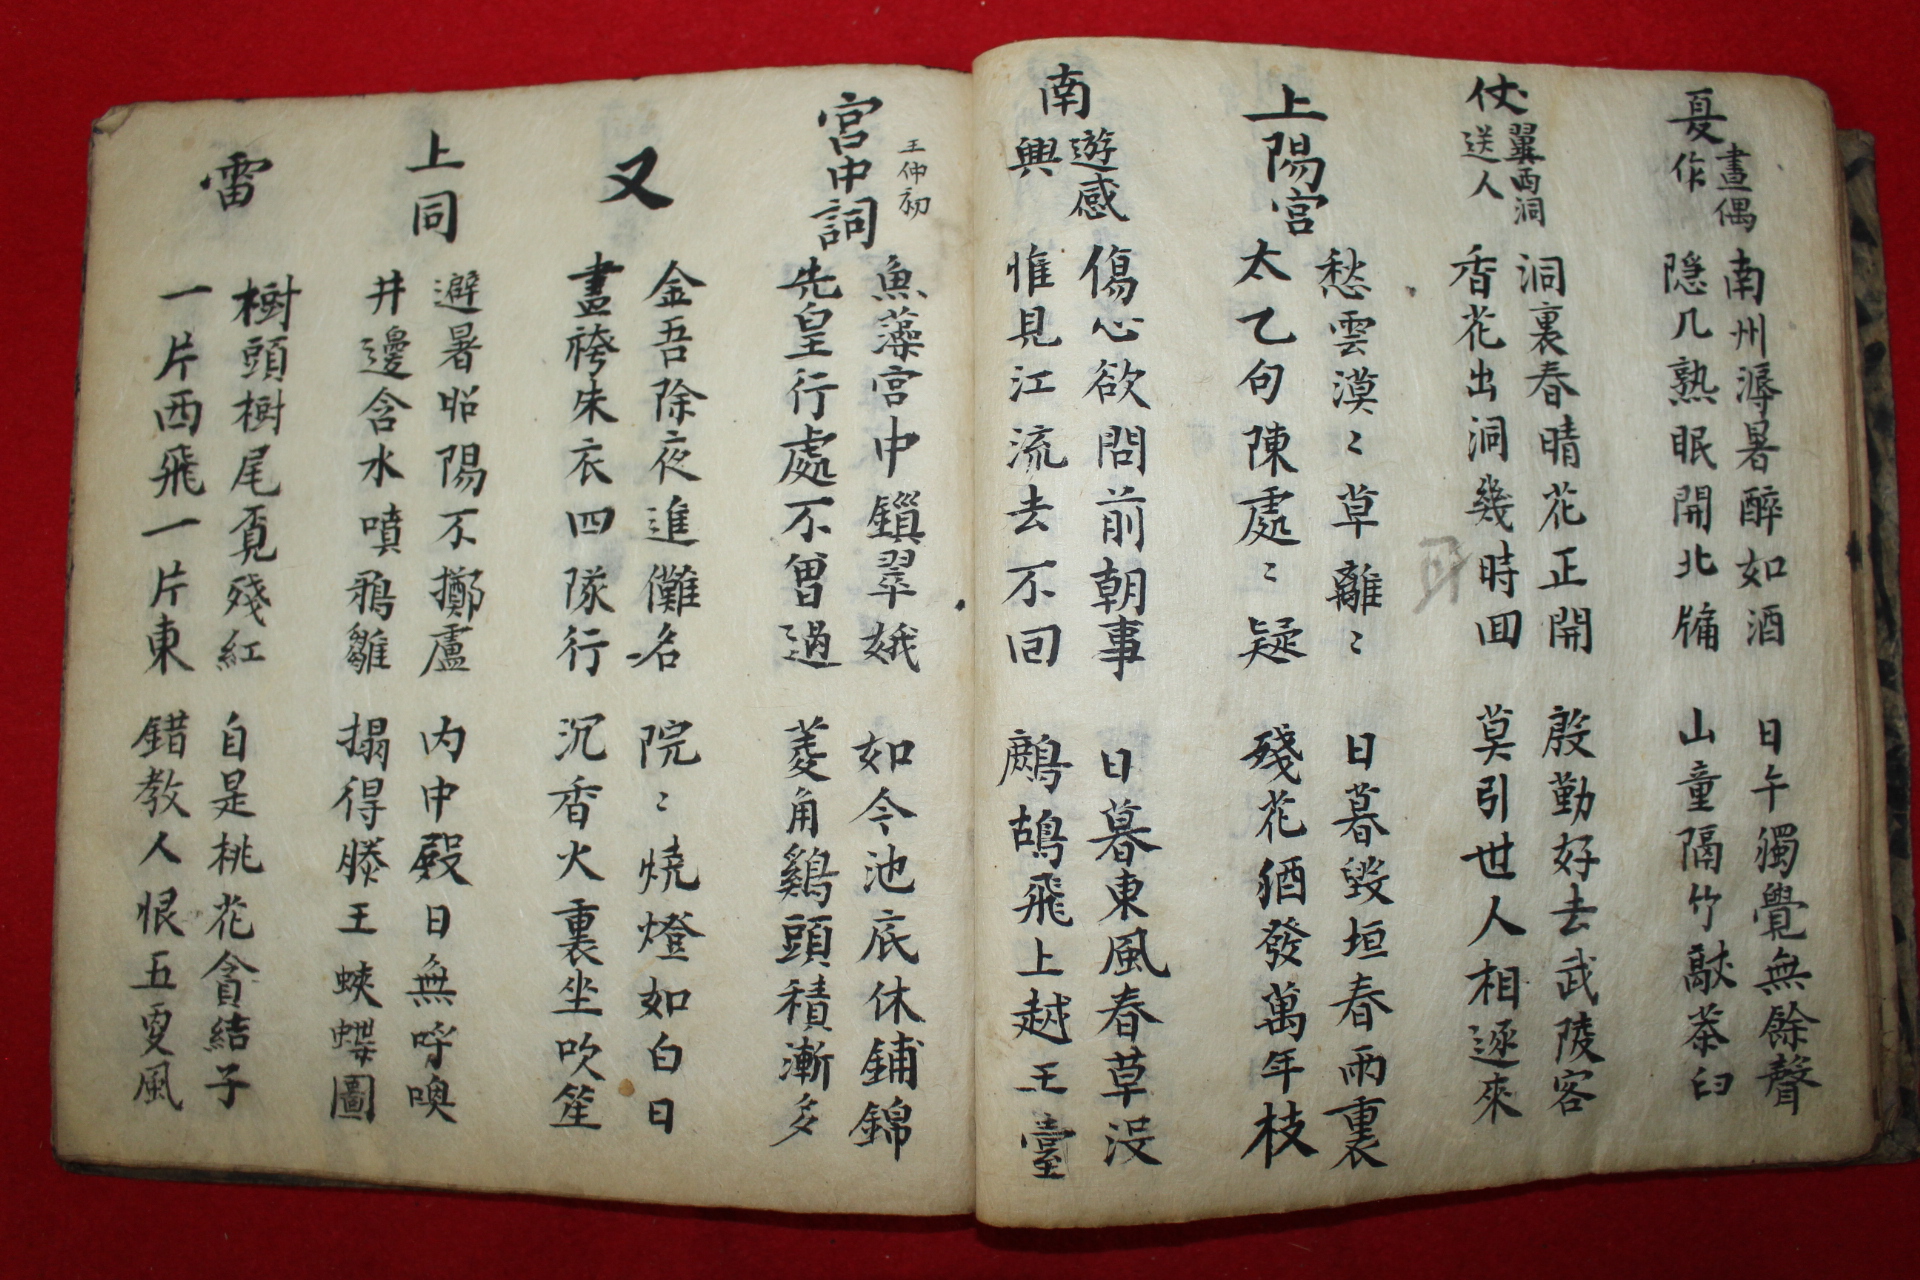 夏晝偶作
南州溽暑醉如酒
隐几熟眠開北牖
日午獨覺無餘聲
山童隔竹敲茶臼
仗翼西洞送人
洞裏春晴花正開
香花出洞幾時回
殷勤好去武陵客
莫引世人相逐來
上陽宮
愁雲漠〻草離〻
太乙句陳處〻疑
日暮毀垣春雨裏
殘花猶發萬年枝
南遊感興
傷心欲問前朝事
惟見江流去不回
日暮東風春草没
鷓鴣飛上越王臺
王仲初
宮中詞
魚藻宮中鎖翠娥
先皇行處不曾過
如今池底休鋪錦
菱角鷄頭積漸多
又
金吾除夜進儺名
畫袴朱衣四隊行
院〻燒燈如白日
沉香火裏坐吹笙
上同
避暑昭陽不擲盧
井邊含水噴鴉雛
內中殿日無呼喚
搨得滕王蛺蝶圖
雷
樹頭樹尾覔殘紅
一片西飛一片東
自是桃花貪結子
錯教人恨五更風